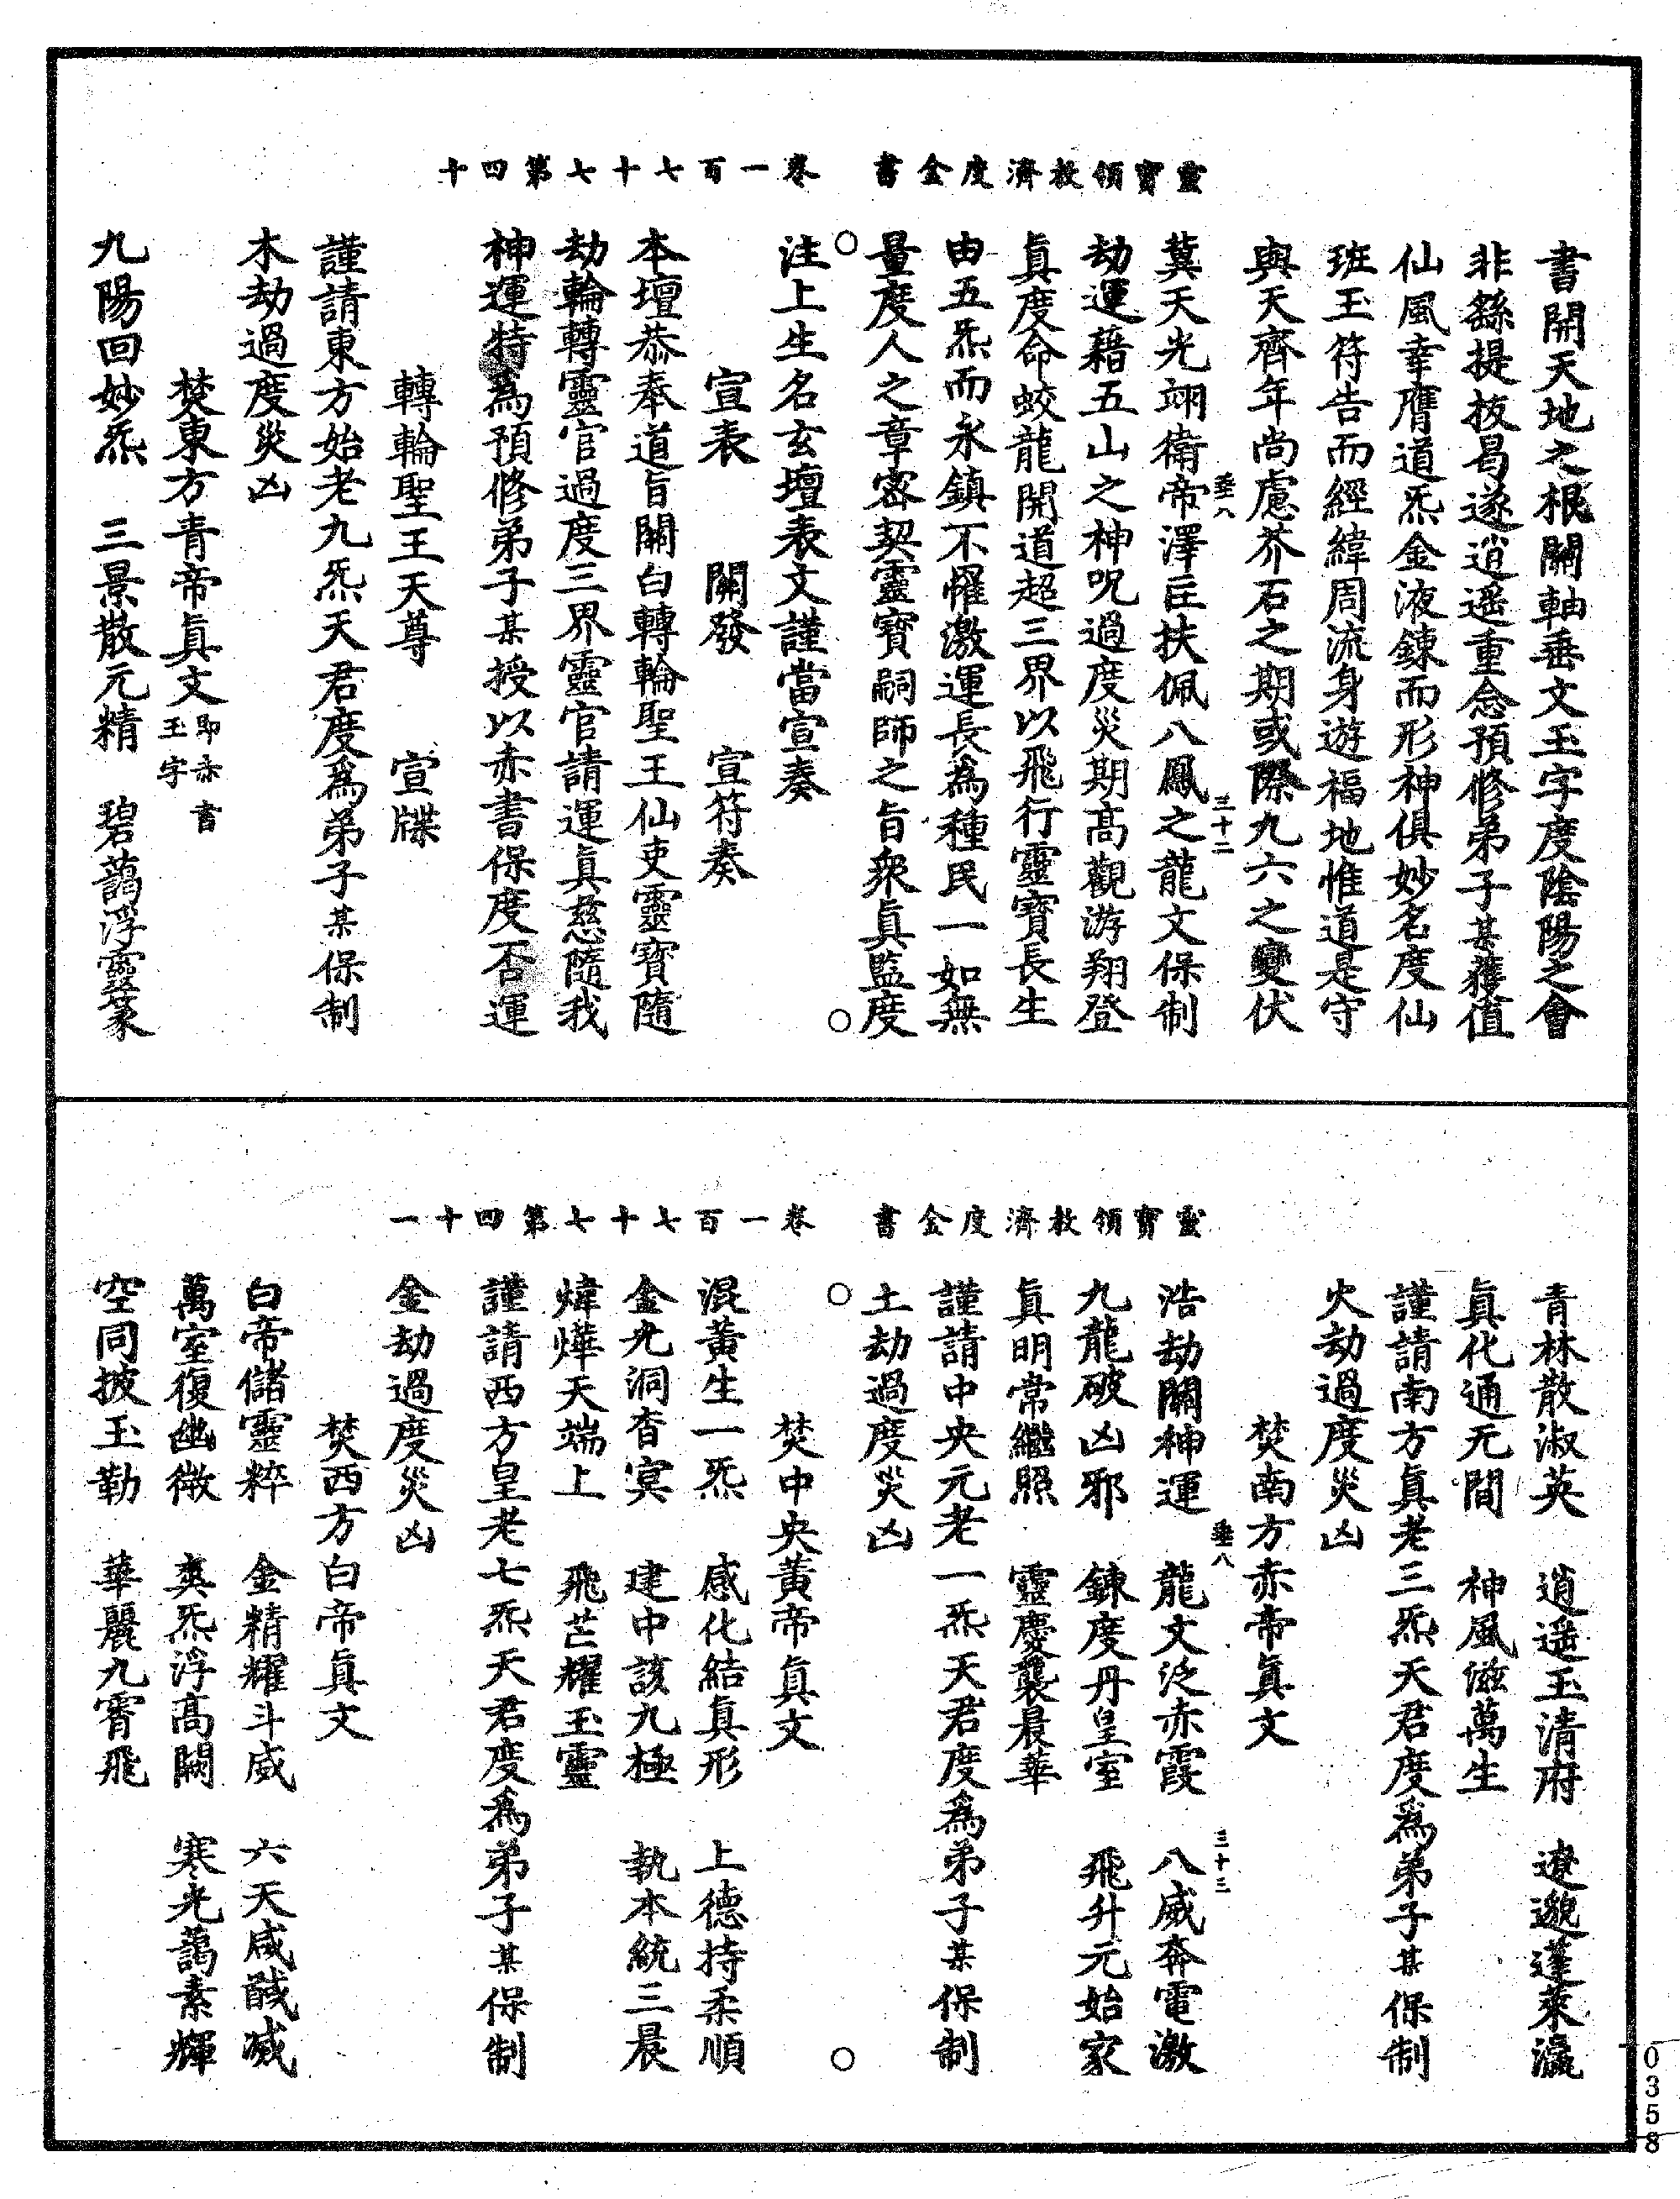 靈寶領教濟度金書　卷一百七十七第四十
書開天地之根關軸垂文玉字度陰陽之會
非繇提拔曷遂逍遥重念預修弟子某獲值
仙風幸膺道炁金液鍊而形神俱妙名度仙
班玉符告而經緯周流身遊福地惟道是守
與天齊年尚慮芥石之期或際九六之變伏
垂八　三十二
冀天光翊衛帝澤匡扶佩八鳳之龍文保制
劫運藉五山之神呪過度災期高觀游翔登
真度命蛟龍開道超三界以飛行靈寶長生
由五炁而永鎮不懼激運長為種民一如無
量度人之章密契靈寶嗣師之旨衆真監度
注上生名玄壇表文謹當宣奏
宣表　關發　宣符奏
本壇恭奉道旨關白轉輪聖王仙吏靈寶隨
劫輪轉靈官過度三界靈官請運真慈隨我
神運特為預修弟子某授以赤書保度否運
轉輪聖王天尊　宣牒
謹請東方始老九炁天君度為弟子某保制
木劫過度災凶
焚東方青帝真文即赤書玉字
九陽回妙炁　三景散元精　碧藹浮靈篆
靈寶領教濟度金書　卷一百七十七第四十一
青林散淑英　逍遥玉清府　遼邈蓬萊瀛
真化通无間　神風滋萬生
謹請南方真老三炁天君度為弟子某保制
火劫過度災凶
焚南方赤帝真文
垂八　三十三
浩劫關神運　龍文泛赤霞　八威奔電激
九龍破凶邪　鍊度丹皇室　飛升元始家
真明常繼照　靈慶襲晨華
謹請中央元老一炁天君度為弟子某保制
土劫過度災凶
焚中央黃帝真文
混黃生一炁　感化結真形　上德持柔順
金光洞杳冥　建中該九極　執本統三晨
煒燁天端上　飛芒耀玉靈
謹請西方皇老七炁天君度為弟子某保制
金劫過度災凶
焚西方白帝真文
白帝儲靈粹　金精耀斗威　六天咸馘滅
萬室復幽微　爽炁浮高闕　寒光藹素輝
空同披玉勒　華麗九霄飛
0358